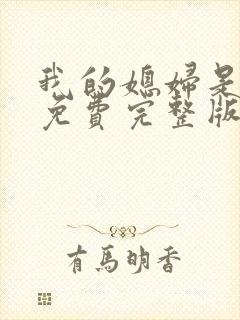 我的媳婦是
免費完整版
有馬明香